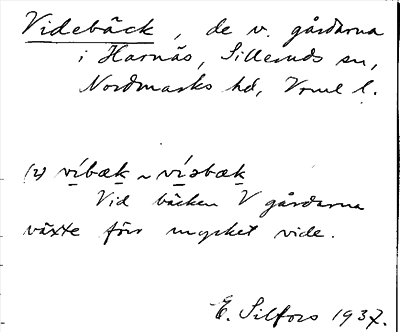 Videbäck, de v. gårdarna
i Harnäs, Sillerud sn,
Nordmarks hd, Vrml l.
(2) víbæk ~ víəbæk
Vid bäcken V gårdarna
växte förr mycket vide.
E. Silfors 1937.